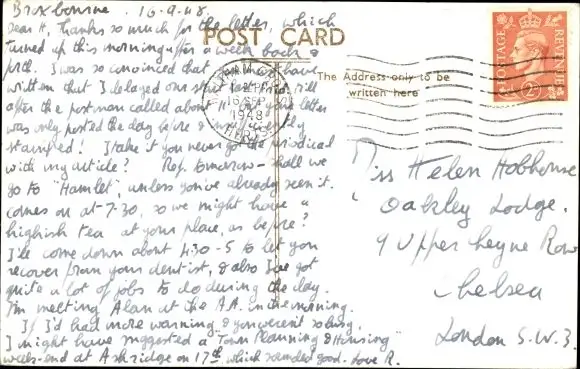 Broxbourne. 16.9.48.
Dear H, Thanks so much for the letter, which
turned up this morning after a week back &
forth. I was so convinced that you'd have
written that I delayed our start for Paris till
after the postman called about 11, but your letter
was only posted the day before & insufficiently
stamped! I take it you never got the periodical
with my article? Ref. tomorrow - shall we
go to "Hamlet", unless you've already seen it.
comes on at 7-30, so we might have a
highish tea at your place, as before?
I'll come down about 4.30 - 5 to let you
recover from your dentist, & also I've got
quite a lot of jobs to do during the day.
I'm meeting Alan at the A.A. in the morning.
If I'd had more warning & you weren't so busy,
I might have suggested a Town Planning & Housing
week-end at Ashridge on 17th, which sounded good. Love R.
POST CARD
The Address only to be
written here
16 SEP
1948
HERTS
POSTAGE
REVENUE
2D
Miss Helen Hobhouse
Oakley Lodge.
9 Upper Cheyne Row
Chelsea
London S.W.3